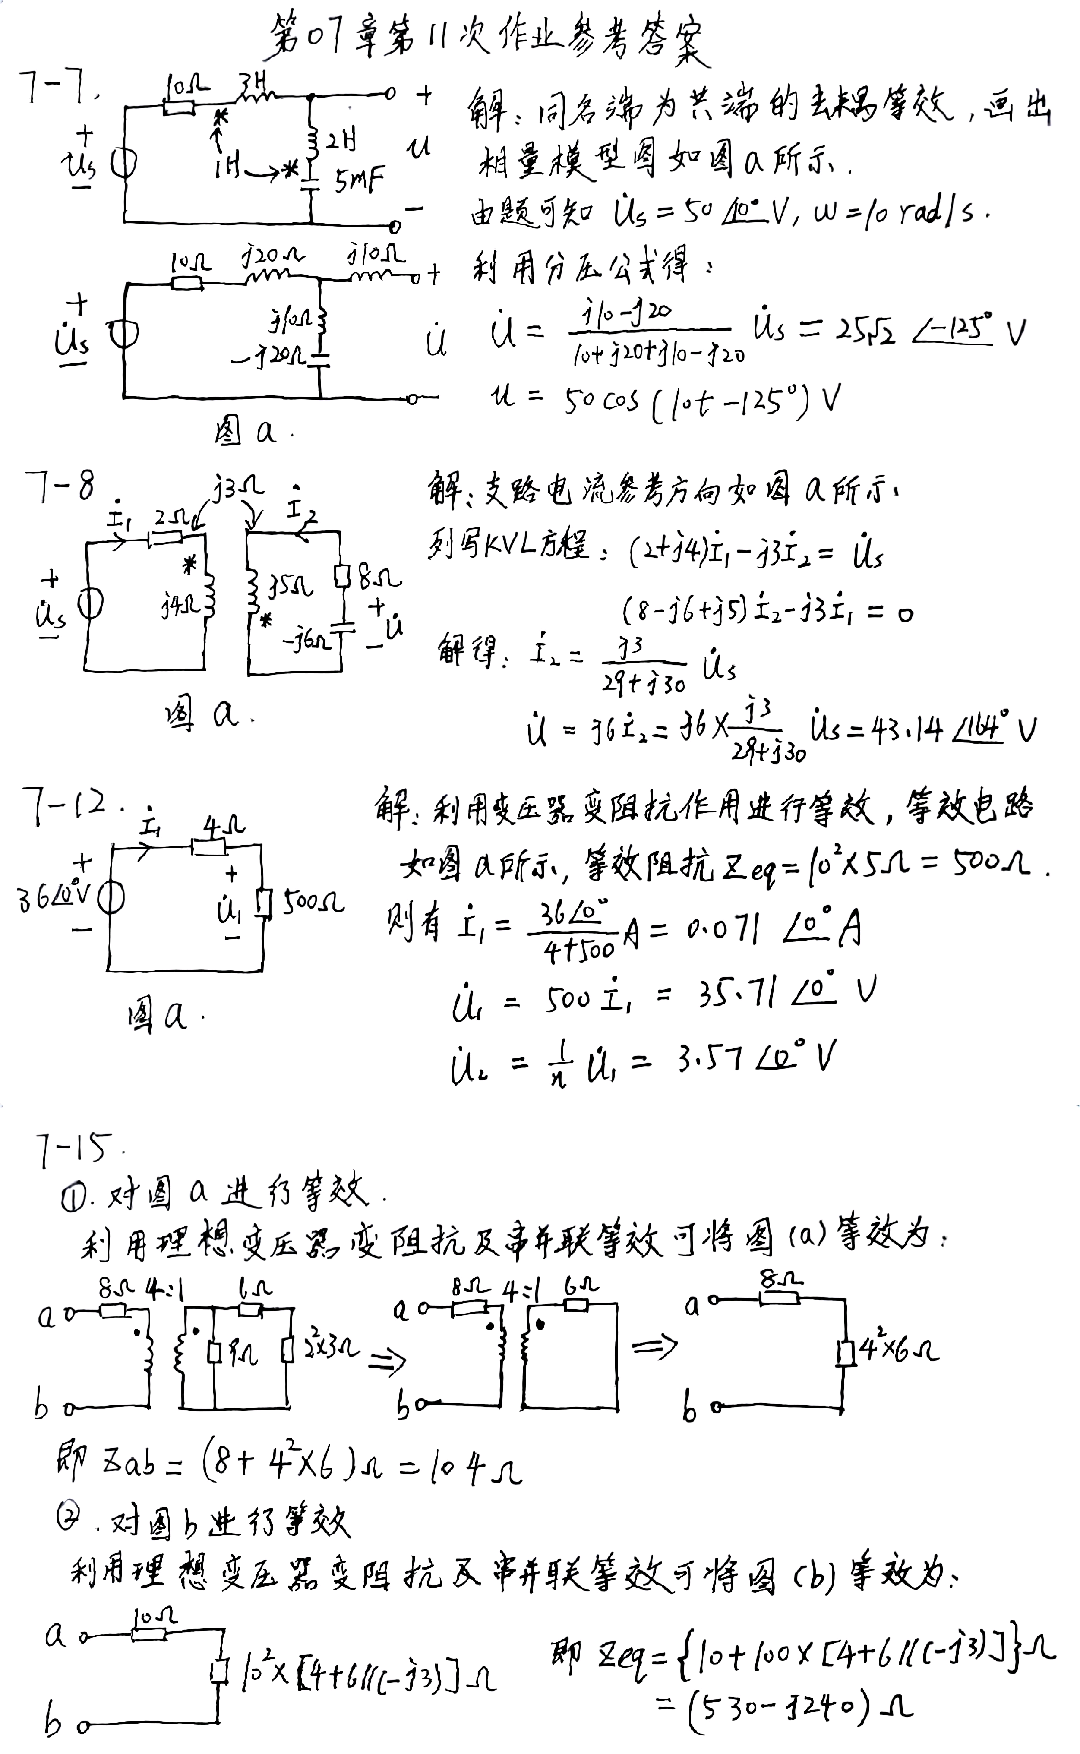 第07章第11次作业参考答案
7-7.
10Ω 3H
+ u̇s −
* 1H → *
2H
5mF
+ u −
解：同名端为共端的去耦等效，画出
相量模型图如图a所示.
由题可知 U̇s = 50∠10° V, ω = 10 rad/s.
10Ω j20Ω j10Ω
+ U̇s −
j10Ω
-j20Ω
+ U̇ −
图a.
利用分压公式得：
U̇ = (j10-j20)/(10+j20+j10-j20) U̇s = 25√2 ∠-125° V
u = 50cos(10t-125°) V
7-8
İ1 2Ω j3Ω İ2
+ U̇s −
* j4Ω
j5Ω *
8Ω
-j6Ω
+ U̇ −
图a.
解：支路电流参考方向如图a所示.
列写KVL方程：(2+j4)İ1-j3İ2 = U̇s
(8-j6+j5)İ2-j3İ1 = 0
解得：İ2 = j3/(29+j30) U̇s
U̇ = j6İ2 = j6× j3/(29+j30) U̇s = 43.14∠164° V
7-12.
İ1 4Ω
+ 36∠0°V −
+ U̇1 −
500Ω
图a.
解：利用变压器变阻抗作用进行等效，等效电路
如图a所示，等效阻抗Zeq = 10²×5Ω = 500Ω.
则有 İ1 = 36∠0°/(4+500) A = 0.071∠0° A
U̇1 = 500İ1 = 35.71∠0° V
U̇2 = 1/n U̇1 = 3.57∠0° V
7-15.
①. 对图a进行等效.
利用理想变压器变阻抗及串并联等效可将图(a)等效为：
a 8Ω 4:1 6Ω
2²×3Ω ⇒
b
a 8Ω 4:1 6Ω ⇒
b
a 8Ω
4²×6Ω
b
即 Zab = (8+4²×6)Ω = 104Ω
②. 对图b进行等效
利用理想变压器变阻抗及串并联等效可将图(b)等效为：
a 10Ω
10²×[4+6//(-j3)]Ω
b
即 Zeq = {10+100×[4+6//(-j3)]}Ω
= (530-j240)Ω